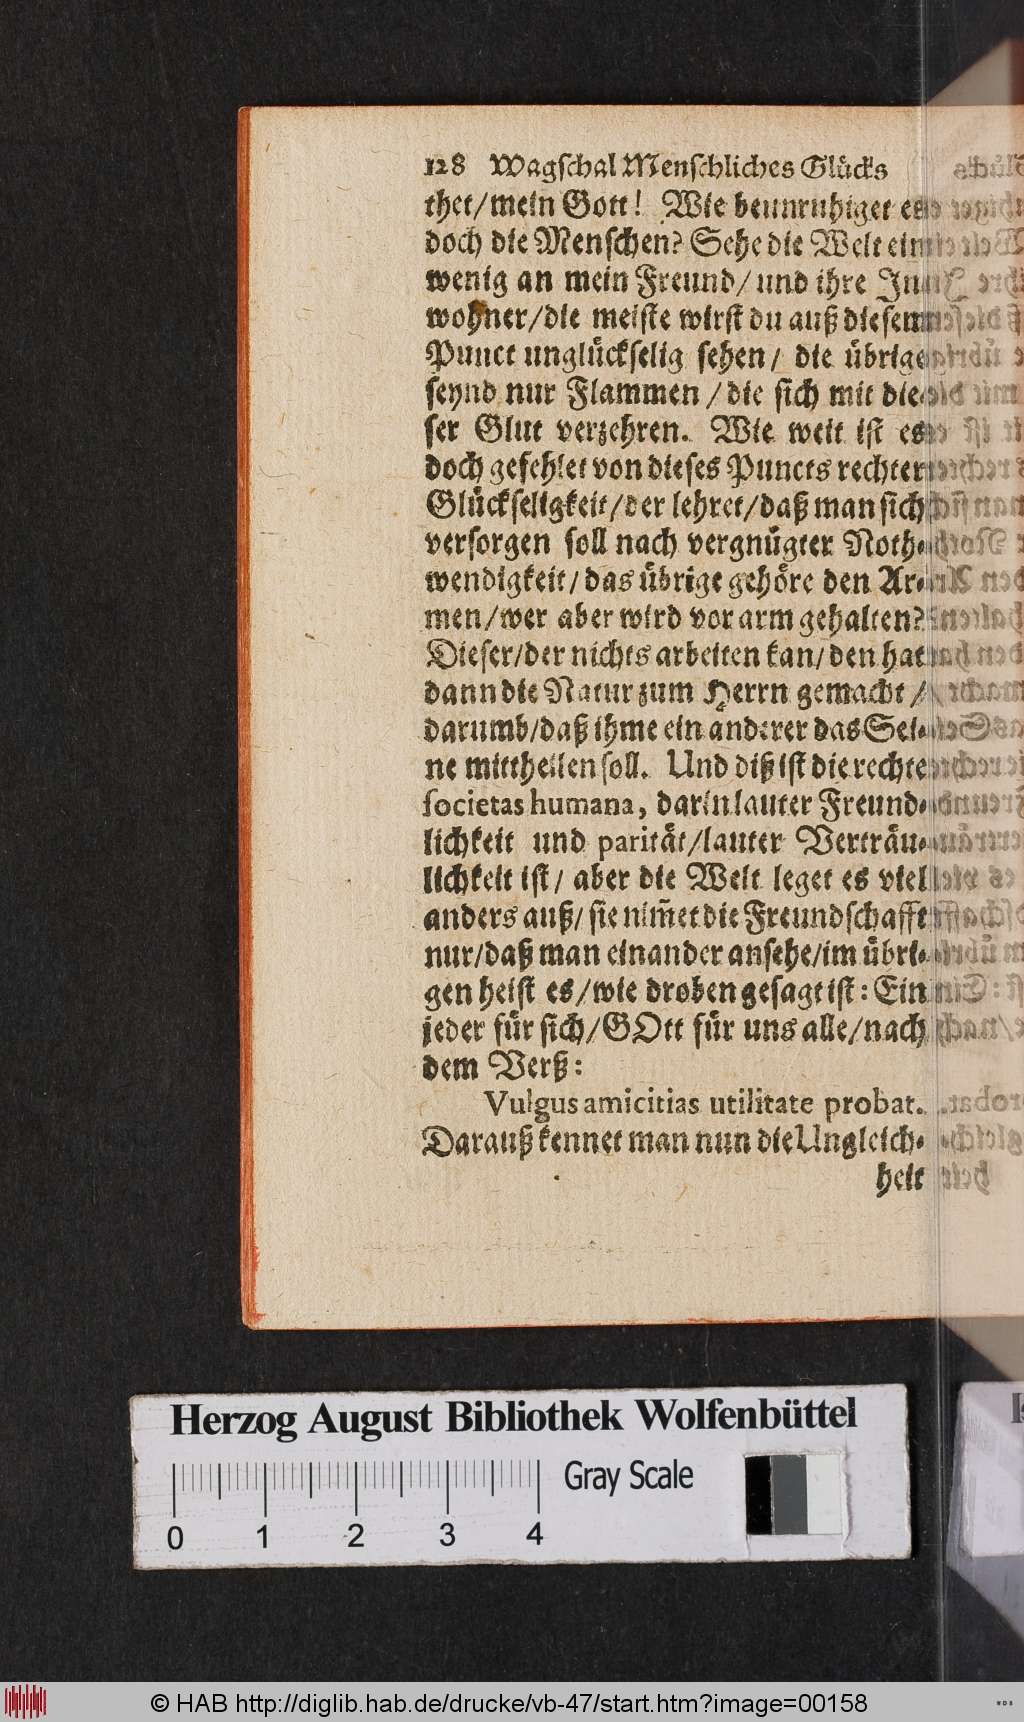 128 Wagschal Menschliches Glücks
thet/mein Gott! Wie beunruhiget es
doch die Menschen? Sehe die Welt ein
wenig an mein Freund/und ihre Inn-
wohner/die meiste wirst du auß diesem
Punct unglückselig sehen/ die übrige
seynd nur Flammen/die sich mit die-
ser Glut verzehren. Wie weit ist es
doch gefehlet von dieses Puncts rechter
Glückseligkeit/der lehret/daß man sich
versorgen soll nach vergnügter Noth-
wendigkeit/das übrige gehöre den Ar-
men/wer aber wird vor arm gehalten?
Dieser/der nichts arbeiten kan/den hat
dann die Natur zum Herrn gemacht/
darumb/daß ihme ein anderer das Sei-
ne mittheilen soll. Und diß ist die rechte
societas humana, darin lauter Freund-
lichkeit und parität/lauter Verträu-
lichkeit ist/ aber die Welt leget es viel
anders auß/ sie nim̃et die Freundschafft
nur/daß man einander ansehe/im übri-
gen heist es/wie droben gesagt ist: Ein
jeder für sich/GOtt für uns alle/nach
dem Verß:
Vulgus amicitias utilitate probat.
Darauß kennet man nun die Ungleich-
heit
Herzog August Bibliothek Wolfenbüttel
Gray Scale
0 1 2 3 4
© HAB http://diglib.hab.de/drucke/vb-47/start.htm?image=00158